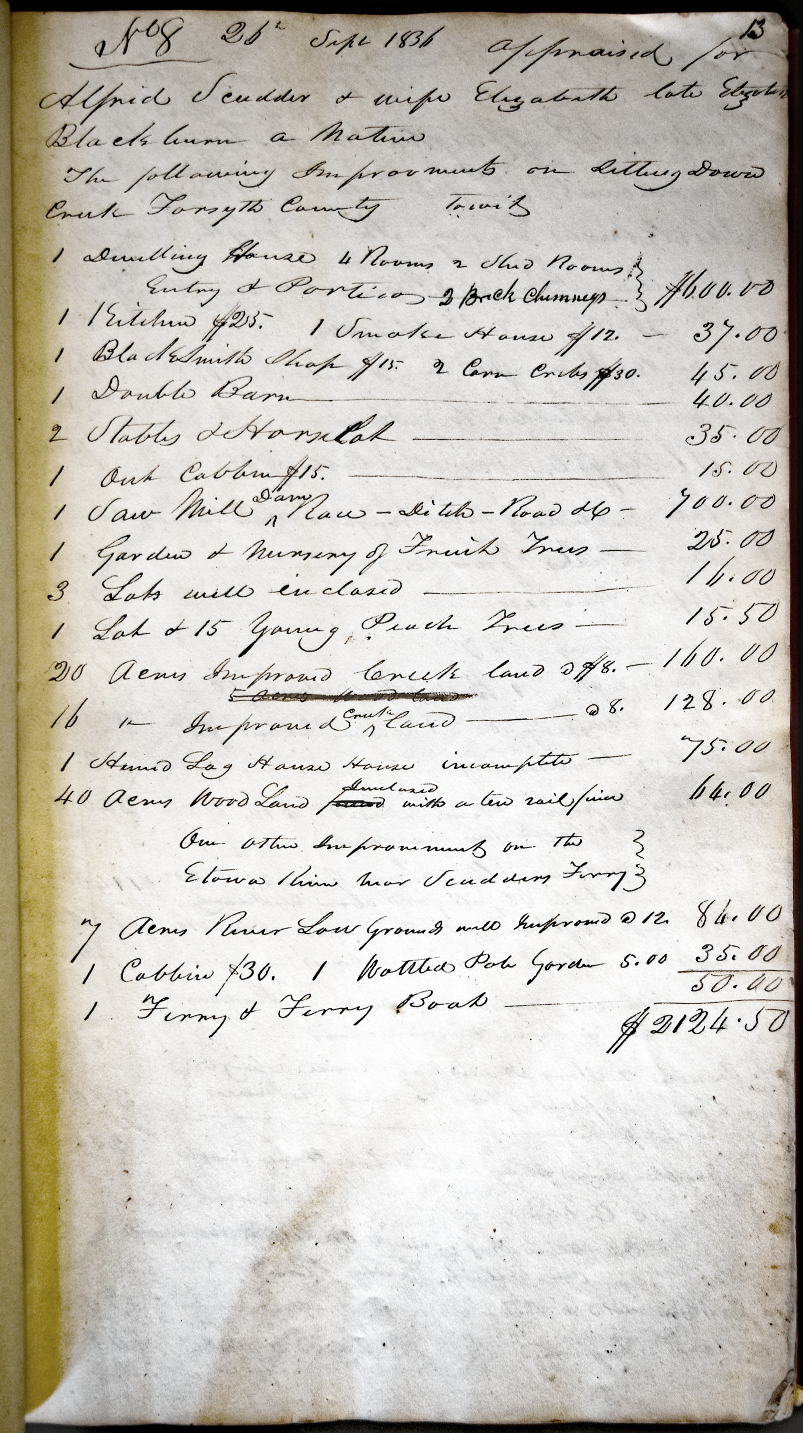 13
No 8 26th Sept 1836 appraised for
Alfrid Scudder & wife Elizabeath late Elizabeth
Blackburn a Native
The following Improovments on Sitting Down
Creek Forsyth County Towit
1 Dwelling House 4 Rooms 2 Shed Rooms
Entry & Portico 2 Brick Chimneys $600.00
1 Kitchen $25. 1 Smoke House $12. — 37.00
1 BlackSmith Shop $15. 2 Corn Cribs $30. 45.00
1 Double Barn 40.00
2 Stables & Horse Lot 35.00
1 Out Cabbin $15. 15.00
1 Saw Mill Dam Race – Ditch – Road &c – 700.00
1 Garden & Nursery of Fruit Trees — 25.00
3 Lots well inclosed 16.00
1 Lot & 15 Young Peach Trees — 15.50
20 Acres Improved Creek land @ $8. — 160.00
5 acres wood land
16 " Improved Creek land @ 8. 128.00
1 Hewed Log House House incomplete — 75.00
40 Acres Wood Land Inclosed with a ten rail fence 64.00
One other Improvement on the
Etowa River near Scudders Ferry
7 Acres River Low Grounds well Improved @ 12. 84.00
1 Cabbin $30. 1 Wattled Pole Garden 5.00 35.00
1 Ferry & Ferry Boat 50.00
$2124.50